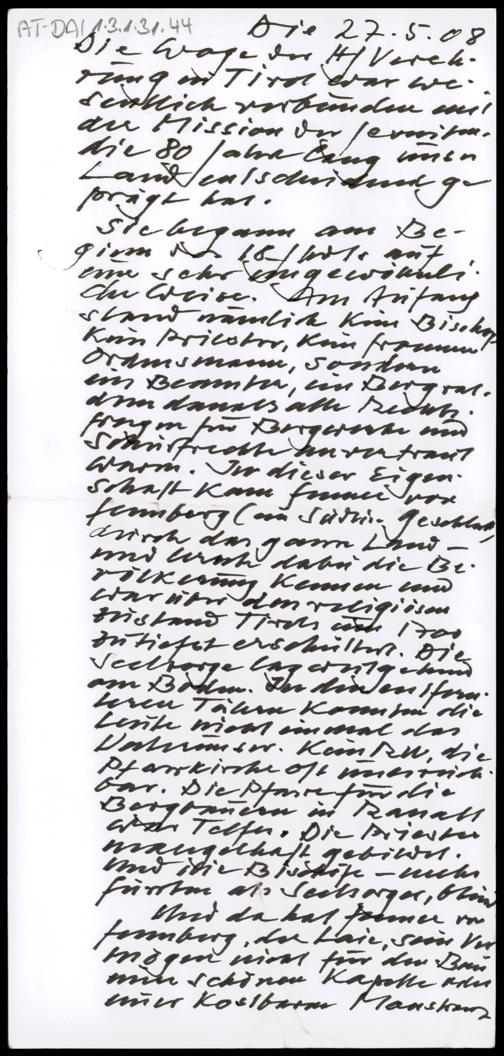 AT-DAI 1.3.1.31.44
Die 27.5.08
Die Woge der HJ Vereh-
rung in Tirol war we-
sentlich verbunden mit
der Mission der Jesuiten
die 80 Jahre lang unser
Land entscheidend ge
prägt hat.
Sie begann am Be-
ginn des 18. Jhdts auf
eine sehr ungewöhnli-
che Weise. Am Anfang
stand nämlich kein Bischof
kein Priester, kein frommer
Ordensmann, sondern
ein Beamter, ein Bergrat.
dem damals alle Rechts.
fragen für Bergwerke und
Schürfrechte anvertraut
waren. In dieser Eigen-
schaft kam Fenner von
Fennberg (ein Südtir. Geschlecht)
durch das ganze Land
und lernte dabei die Be-
völkerung kennen und
war über den religiösen
Zustand Tirols um 1700
zutiefst erschüttert. Die
Seelsorge lag weitgehend
am Boden. In den entfern-
teren Tälern konnten die
Leute nicht einmal das
Vaterunser. Kein , die
Pfarrkirche oft unerreich-
bar. Die Pfarre für die
Bergbauern in Ranalt
war Telfes. Die Priester
mangelhaft gebildet.
Und die Bischöfe – mehr
Fürsten als Seelsorger, blind
Und da hat Fenner von
Fennberg, der Laie, sein Ver
mögen nicht für den Bau
einer schönen Kapelle oder
einer kostbaren Monstranz